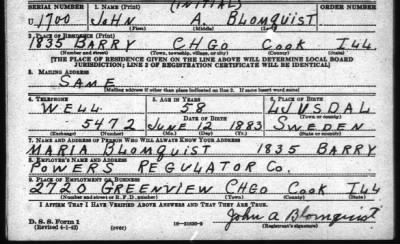 (INITIAL)
SERIAL NUMBER 1. NAME (Print) ORDER NUMBER
U. 1700 JOHN A. BLOMQUIST
(First) (Middle) (Last)
2. PLACE OF RESIDENCE (Print)
1835 BARRY CHGO COOK ILL
(Number and street) (Town, township, village, or city) (County) (State)
[THE PLACE OF RESIDENCE GIVEN ON THE LINE ABOVE WILL DETERMINE LOCAL BOARD
JURISDICTION; LINE 2 OF REGISTRATION CERTIFICATE WILL BE IDENTICAL]
3. MAILING ADDRESS
SAME
[Mailing address if other than place indicated on line 2. If same insert word same]
4. TELEPHONE 5. AGE IN YEARS 6. PLACE OF BIRTH
WELL 58
DATE OF BIRTH (Town or county)
5472 JUNE 12 1883 SWEDEN
(Exchange) (Number) (Mo.) (Day) (Yr.) (State or country)
7. NAME AND ADDRESS OF PERSON WHO WILL ALWAYS KNOW YOUR ADDRESS
MARIA BLOMQUIST 1835 BARRY
8. EMPLOYER'S NAME AND ADDRESS
POWERS REGULATOR CO.
9. PLACE OF EMPLOYMENT OR BUSINESS
2720 GREENVIEW CHGO COOK ILL
(Number and street or R. F. D. number) (Town) (County) (State)
I AFFIRM THAT I HAVE VERIFIED ABOVE ANSWERS AND THAT THEY ARE TRUE.
D. S. S. Form 1 John A Blomquist
(Revised 4-1-42) (over) 16—21630-2 (Registrant's signature)